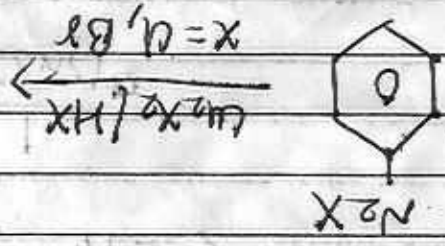 N2X
Cu2X2/HX
X = Cl, Br